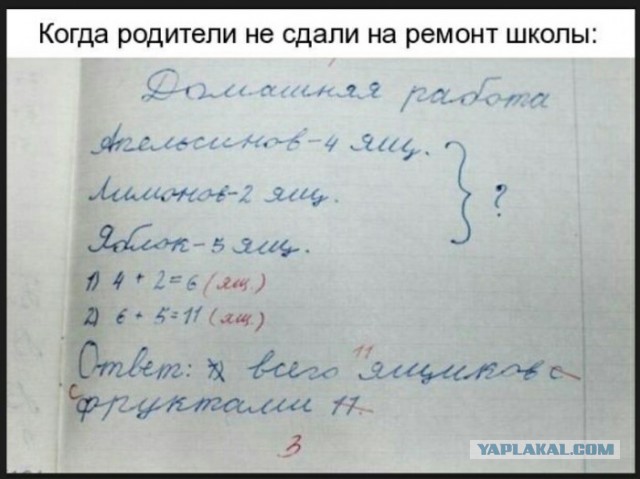 Когда родители не сдали на ремонт школы:
Домашняя работа
Апельсинов-4 ящ.
Лимонов-2 ящ. ?
Яблок-5 ящ.
1) 4 + 2=6 (ящ.)
2) 6 + 5=11 (ящ.)
11
Ответ: всего ящиков с
с фруктами 11.
3
YAPLAKAL.COM